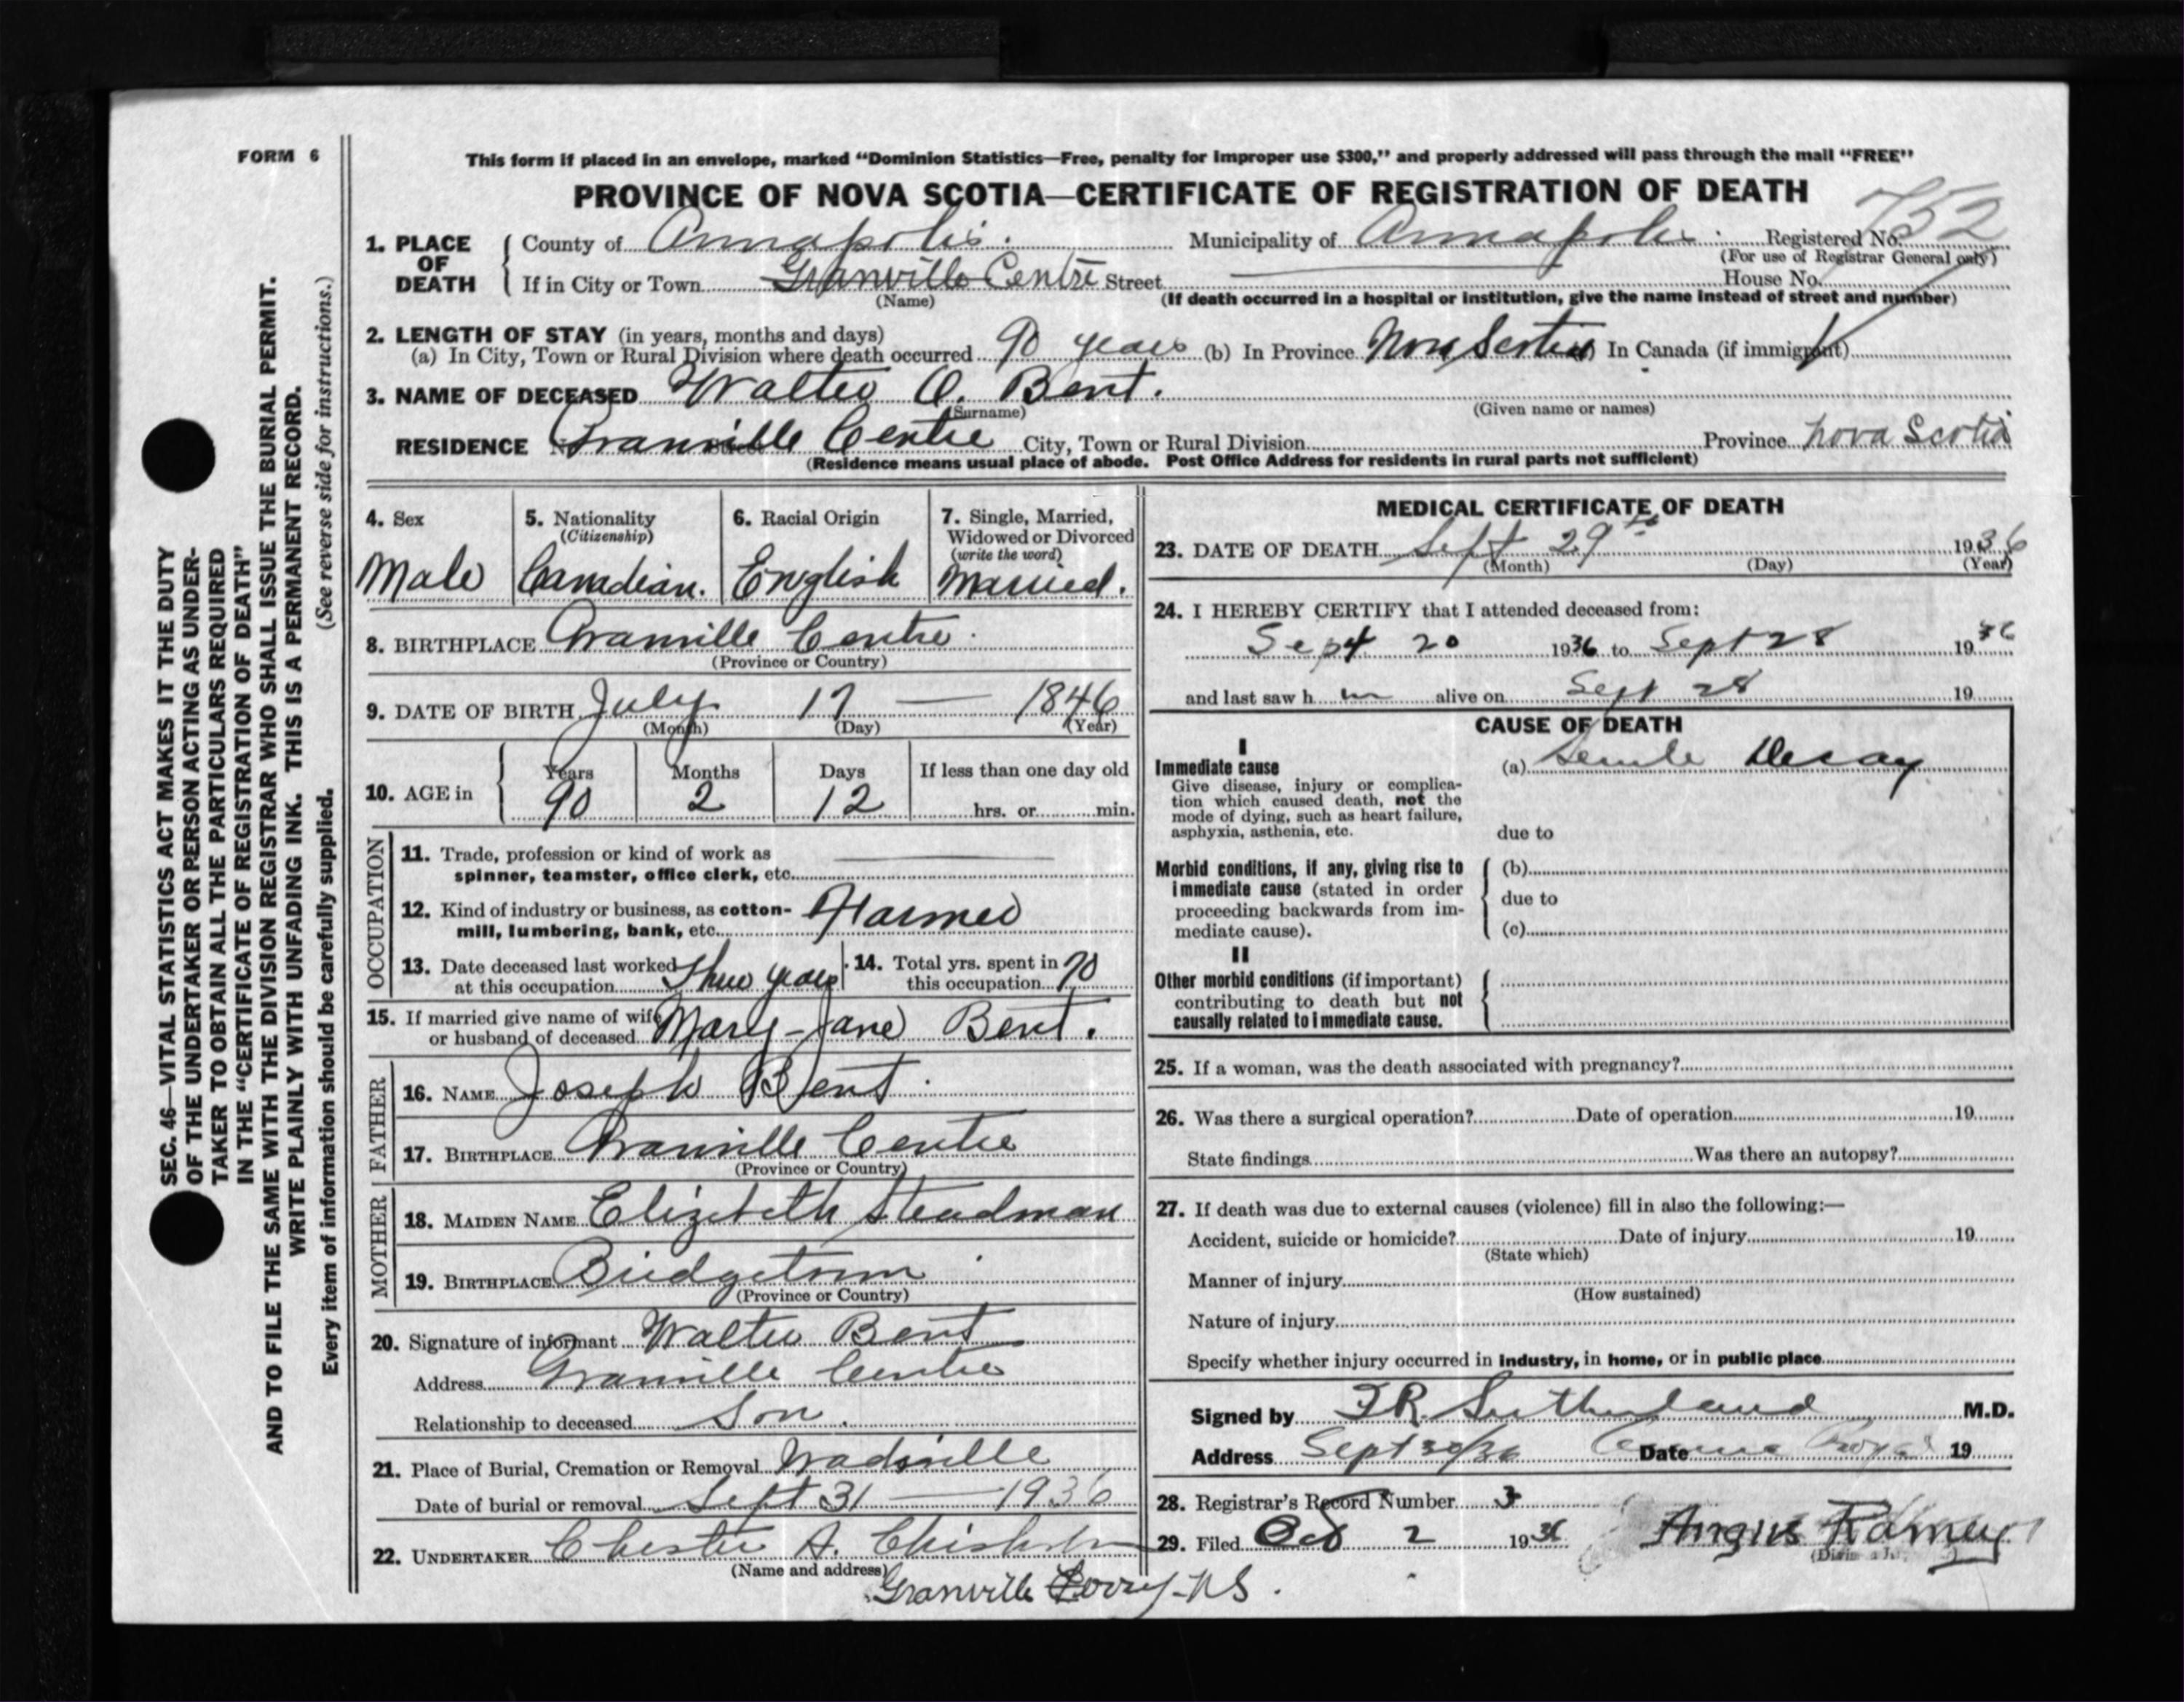 FORM 6
This form if placed in an envelope, marked "Dominion Statistics—Free, penalty for improper use $300," and properly addressed will pass through the mail "FREE"
PROVINCE OF NOVA SCOTIA—CERTIFICATE OF REGISTRATION OF DEATH
752
1. PLACE OF DEATH
County of Annapolis. Municipality of Annapolis. Registered No.
(For use of Registrar General only)
If in City or Town Granville Centre Street House No.
(Name) (If death occurred in a hospital or institution, give the name instead of street and number)
2. LENGTH OF STAY (in years, months and days)
(a) In City, Town or Rural Division where death occurred 90 years (b) In Province Nova Scotia In Canada (if immigrant)
3. NAME OF DECEASED Walter O. Bent.
(Surname) (Given name or names)
RESIDENCE Granville Centre City, Town or Rural Division Province Nova Scotia
(Residence means usual place of abode. Post Office Address for residents in rural parts not sufficient)
4. Sex
Male
5. Nationality
(Citizenship)
Canadian.
6. Racial Origin
English
7. Single, Married,
Widowed or Divorced
(write the word)
Married.
8. BIRTHPLACE Granville Centre.
(Province or Country)
9. DATE OF BIRTH July 17 — 1846
(Month) (Day) (Year)
10. AGE in
Years Months Days If less than one day old
90 2 12 hrs. or min.
OCCUPATION
11. Trade, profession or kind of work as
spinner, teamster, office clerk, etc.
12. Kind of industry or business, as cotton-
mill, lumbering, bank, etc. Farmer
13. Date deceased last worked
at this occupation Three years
14. Total yrs. spent in
this occupation 70
15. If married give name of wife
or husband of deceased Mary-Jane Bent.
FATHER
16. NAME Joseph Bent.
17. BIRTHPLACE Granville Centre
(Province or Country)
MOTHER
18. MAIDEN NAME Elizebeth Steadman
19. BIRTHPLACE Bridgetown
(Province or Country)
20. Signature of informant Walter Bent
Address Granville Centre
Relationship to deceased Son.
21. Place of Burial, Cremation or Removal Wadsville
Date of burial or removal Sept 31 — 1936
22. UNDERTAKER Chester A. Chisholm
(Name and address)
Granville Ferry-NS.
MEDICAL CERTIFICATE OF DEATH
23. DATE OF DEATH Sept 29th 1936
(Month) (Day) (Year)
24. I HEREBY CERTIFY that I attended deceased from:
Sept 20 1936 to Sept 28 1936
and last saw h im alive on Sept 28 19
CAUSE OF DEATH
I
Immediate cause
Give disease, injury or complica-
tion which caused death, not the
mode of dying, such as heart failure,
asphyxia, asthenia, etc.
(a) Senile Decay
due to
Morbid conditions, if any, giving rise to
immediate cause (stated in order
proceeding backwards from im-
mediate cause).
(b)
due to
(c)
II
Other morbid conditions (if important)
contributing to death but not
causally related to immediate cause.
25. If a woman, was the death associated with pregnancy?
26. Was there a surgical operation? Date of operation 19
State findings Was there an autopsy?
27. If death was due to external causes (violence) fill in also the following:—
Accident, suicide or homicide? Date of injury 19
(State which)
Manner of injury
(How sustained)
Nature of injury
Specify whether injury occurred in industry, in home, or in public place
Signed by F.R. Sutherland M.D.
Address Sept 30/36 Date 19
28. Registrar's Record Number 3
29. Filed Oct 2 1936 Angus Ramey
SEC. 46—VITAL STATISTICS ACT MAKES IT THE DUTY
OF THE UNDERTAKER OR PERSON ACTING AS UNDER-
TAKER TO OBTAIN ALL THE PARTICULARS REQUIRED
IN THE "CERTIFICATE OF REGISTRATION OF DEATH"
AND TO FILE THE SAME WITH THE DIVISION REGISTRAR WHO SHALL ISSUE THE BURIAL PERMIT.
WRITE PLAINLY WITH UNFADING INK. THIS IS A PERMANENT RECORD.
Every item of information should be carefully supplied. (See reverse side for instructions.)